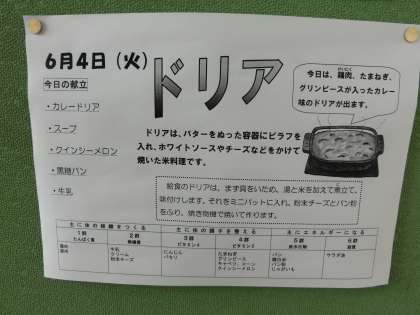 6月4日（火）
ドリア
今日の献立
・カレードリア
・スープ
・クインシーメロン
・黒糖パン
・牛乳
今日は、鶏肉、たまねぎ、
グリンピースが入ったカレー
味のドリアが出ます。
ドリアは、バターをぬった容器にピラフを
入れ、ホワイトソースやチーズなどをかけて
焼いた米料理です。
給食のドリアは、まず具をいため、湯と米を加えて煮立て、
味付けします。それをミニバットに入れ、粉末チーズとパン粉
をふり、焼き物機で焼いて作ります。
主に体の組織をつくる 主に体の調子を整える 主にエネルギーになる
1群 2群 3群 4群 5群 6群
たんぱく質 無機質 ビタミンA ビタミンC 炭水化物 脂質
鶏肉 牛乳 にんじん たまねぎ パン サラダ油
クリーム パセリ グリンピース
粉末チーズ キャベツ、コーン パン粉
クインシーメロン じゃがいも